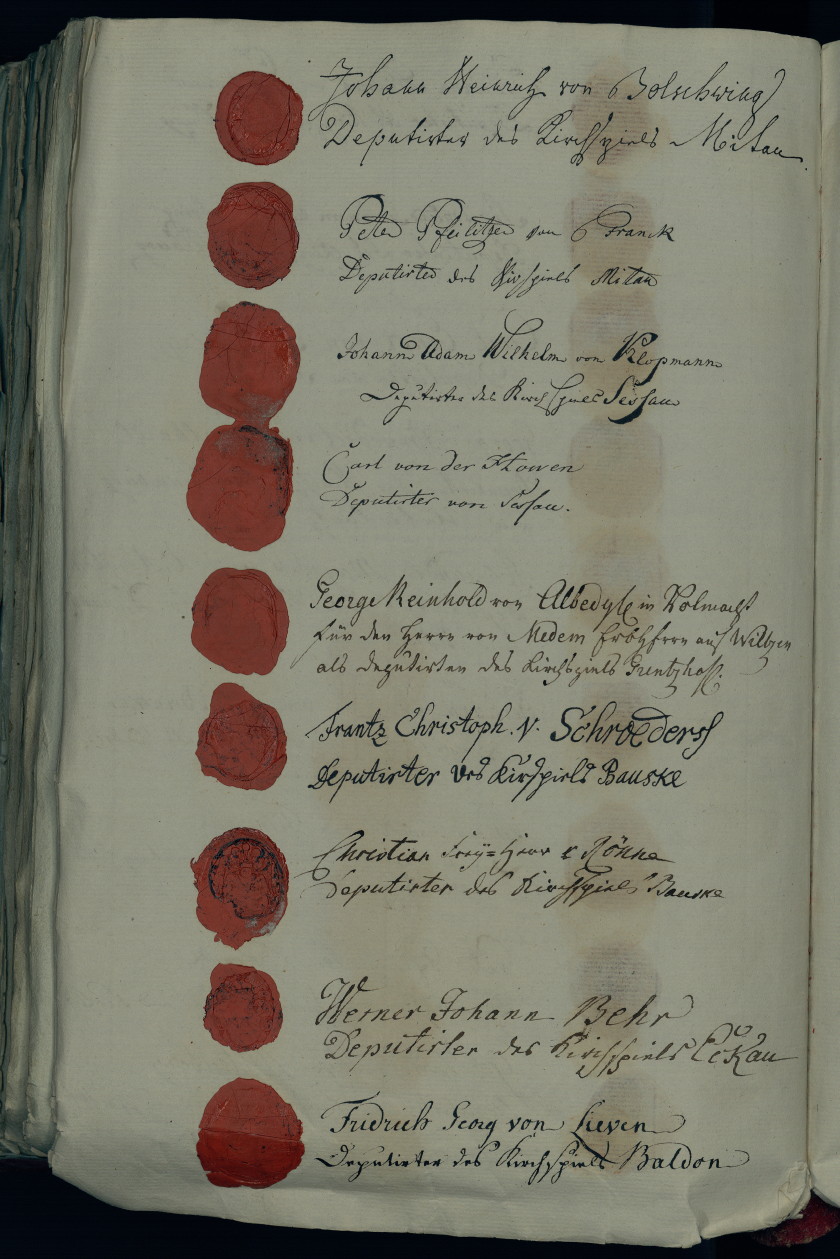 Johann Heinrich von Bolschwing
Deputirter des Kirchspiels Mitau
Peter Pfeilitzer von Franck
Deputirter des Kirspiels Mitau
Johann Adam Wilhelm von Klopmann
Deputirter des Kirch Spiels Sessau
Carl von der Howen
Deputirter von Sessau.
George Reinhold von Albedyl in Volmacht
für den Herrn von Medem Erbhherrn auf Wiltzen
als deputirten des Kirchspiels Grentzhoff.
Frantz Christoph. v. Schroeders
Deputirter des Kirspiels Bauske
Christian Frey=Herr v Rönne
Deputirter des Kirchspiels Bauske
Werner Johann Behr
Deputirter des Kirchspiels Eckau
Fridrich Georg von Lieven
Deputirter des Kirchspiels Baldon